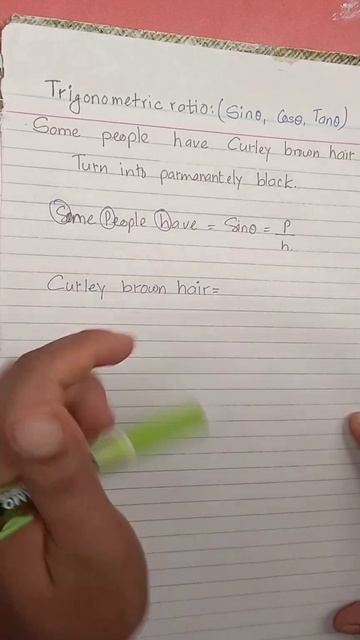 Trigonometric ratio:(Sinθ, Cosθ, Tanθ)
Some people have Curley brown hair
Turn into parmanantely black.
Some People have = Sinθ = P/h
Curley brown hair=